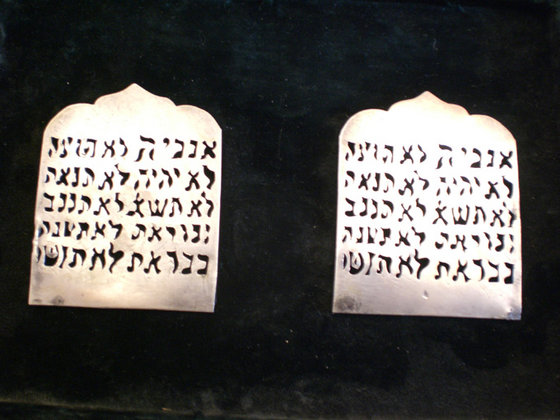 אנכי ה לא תרצח
לא יהיה לא תנאף
לא תשא לא תגנב
זכור את לא תענה
כבד את לא תחמד
אנכי ה לא תרצח
לא יהיה לא תנאף
לא תשא לא תגנב
זכור את לא תענה
כבד את לא תחמד